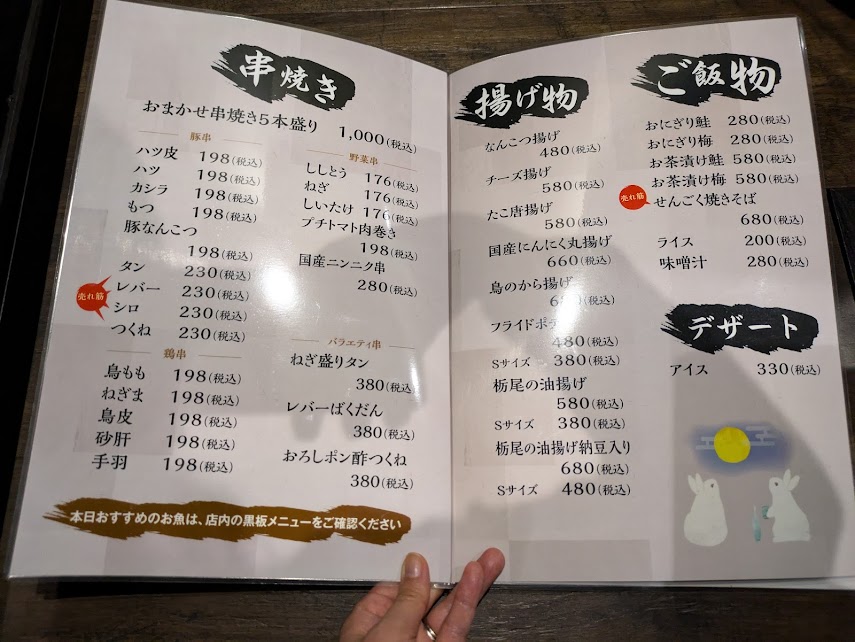 串焼き
おまかせ串焼き5本盛り 1,000(税込)
豚串
ハツ皮 198(税込)
ハツ 198(税込)
カシラ 198(税込)
もつ 198(税込)
豚なんこつ
198(税込)
タン 230(税込)
売れ筋
レバー 230(税込)
シロ 230(税込)
つくね 230(税込)
鶏串
鳥もも 198(税込)
ねぎま 198(税込)
鳥皮 198(税込)
砂肝 198(税込)
手羽 198(税込)
野菜串
ししとう 176(税込)
ねぎ 176(税込)
しいたけ 176(税込)
プチトマト肉巻き
198(税込)
国産ニンニク串
280(税込)
バラエティ串
ねぎ盛りタン
380(税込)
レバーばくだん
380(税込)
おろしポン酢つくね
380(税込)
本日おすすめのお魚は、店内の黒板メニューをご確認ください
揚げ物
なんこつ揚げ
480(税込)
チーズ揚げ
580(税込)
たこ唐揚げ
580(税込)
国産にんにく丸揚げ
660(税込)
鳥のから揚げ
(税込)
フライドポテ
480(税込)
Sサイズ 380(税込)
栃尾の油揚げ
580(税込)
Sサイズ 380(税込)
栃尾の油揚げ納豆入り
680(税込)
Sサイズ 480(税込)
ご飯物
おにぎり鮭 280(税込)
おにぎり梅 280(税込)
お茶漬け鮭 580(税込)
お茶漬け梅 580(税込)
売れ筋
せんごく焼きそば
680(税込)
ライス 200(税込)
味噌汁 280(税込)
デザート
アイス 330(税込)